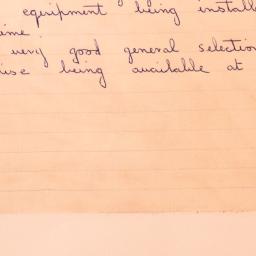 equipment being install
ime
very good general selection
ise being available at